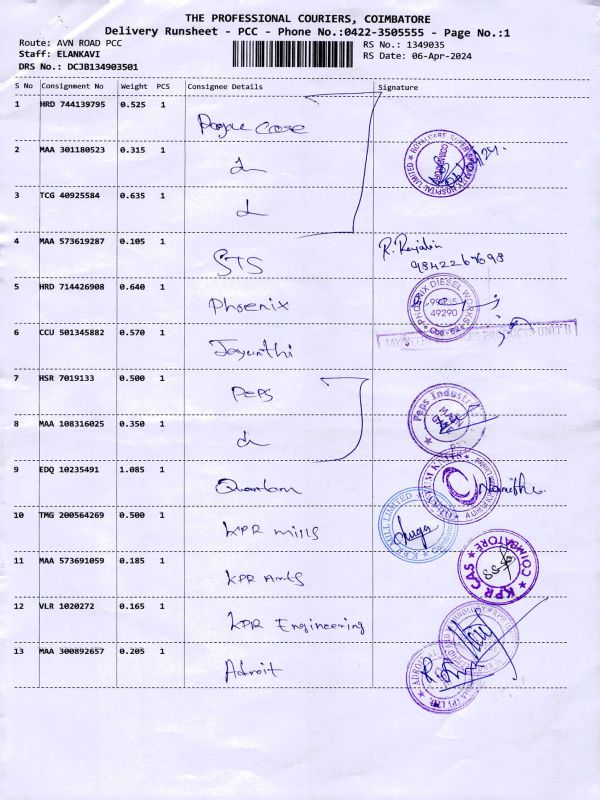 THE PROFESSIONAL COURIERS, COIMBATORE
Delivery Runsheet - PCC - Phone No.:0422-3505555 - Page No.:1
Route: AVN ROAD PCC
RS No.: 1349035
Staff: ELANKAVI
RS Date: 06-Apr-2024
DRS No.: DCJB134903501
S No Consignment No Weight PCS Consignee Details Signature
1 HRD 744139795 0.525 1
2 MAA 301180523 0.315 1
3 TCG 40925584 0.635 1
4 MAA 573619287 0.105 1 STS
5 HRD 714426908 0.640 1 Phoenix
PHOENIX DIESEL WORKS
49290
6 CCU 501345882 0.570 1 Jayanthi
UNIT II
7 HSR 7019133 0.500 1 PEPS
Peps Industries
8 MAA 108316025 0.350 1
9 EDQ 10235491 1.085 1 Quantum
10 TMG 200564269 0.500 1 KPR mills
11 MAA 573691059 0.185 1 KPR Arts
KPR CAS COIMBATORE
12 VLR 1020272 0.165 1 KPR Engineering
13 MAA 300892657 0.205 1 Adroit